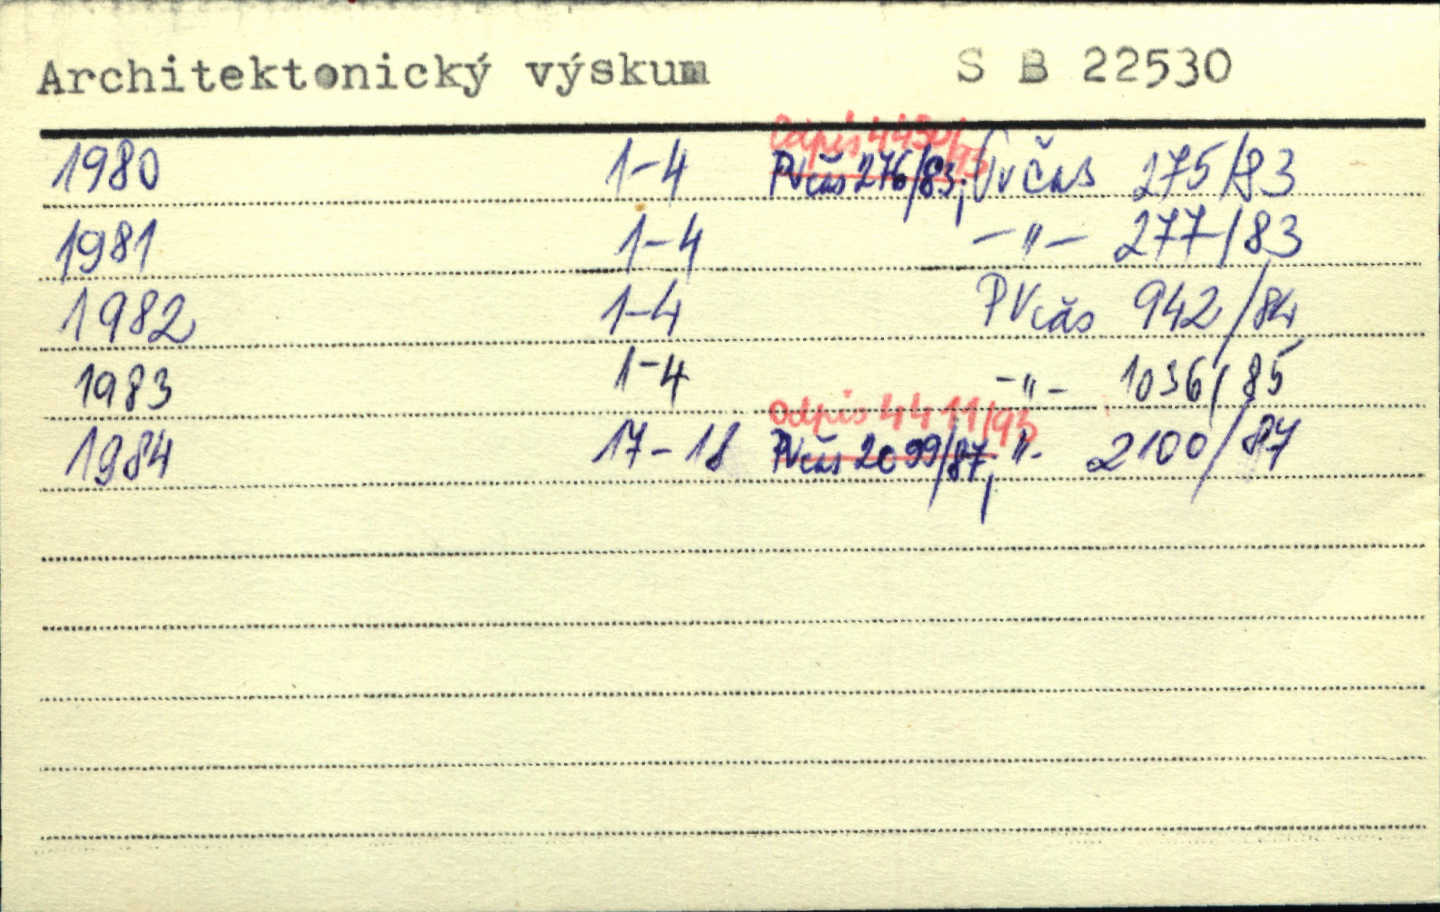 Architektonický výskum S B 22530
odpis 4430/93
1980 1-4 PVčas 276/83, PVčas 275/83
1981 1-4 -"- 277/83
1982 1-4 PVčas 942/84
1983 1-4 -"- 1036/85
odpis 4411/93
1984 17-18 PVčas 2099/87, -"- 2100/87